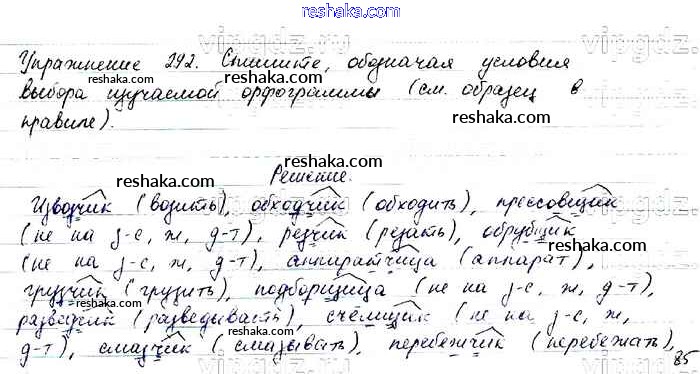 reshaka.com
Упражнение 292. Спишите, обозначая условия
выбора изучаемой орфограммы (см. образец в
правиле).
reshaka.com
reshaka.com
reshaka.com
Решение.
Извозчик (возить), обходчик (обходить), прессовщик
(не на з-с, ж, д-т), резчик (резать), обрубщик
(не на з-с, ж, д-т), аппаратчица (аппарат),
грузчик (грузить), подборщица (не на з-с, ж, д-т),
разведчик (разведывать), счёмщик (не на з-с, ж,
д-т), смазчик (смазывать), перебежчик (перебежать),
reshaka.com
reshaka.com
reshaka.com
reshaka.com
reshaka.com
85